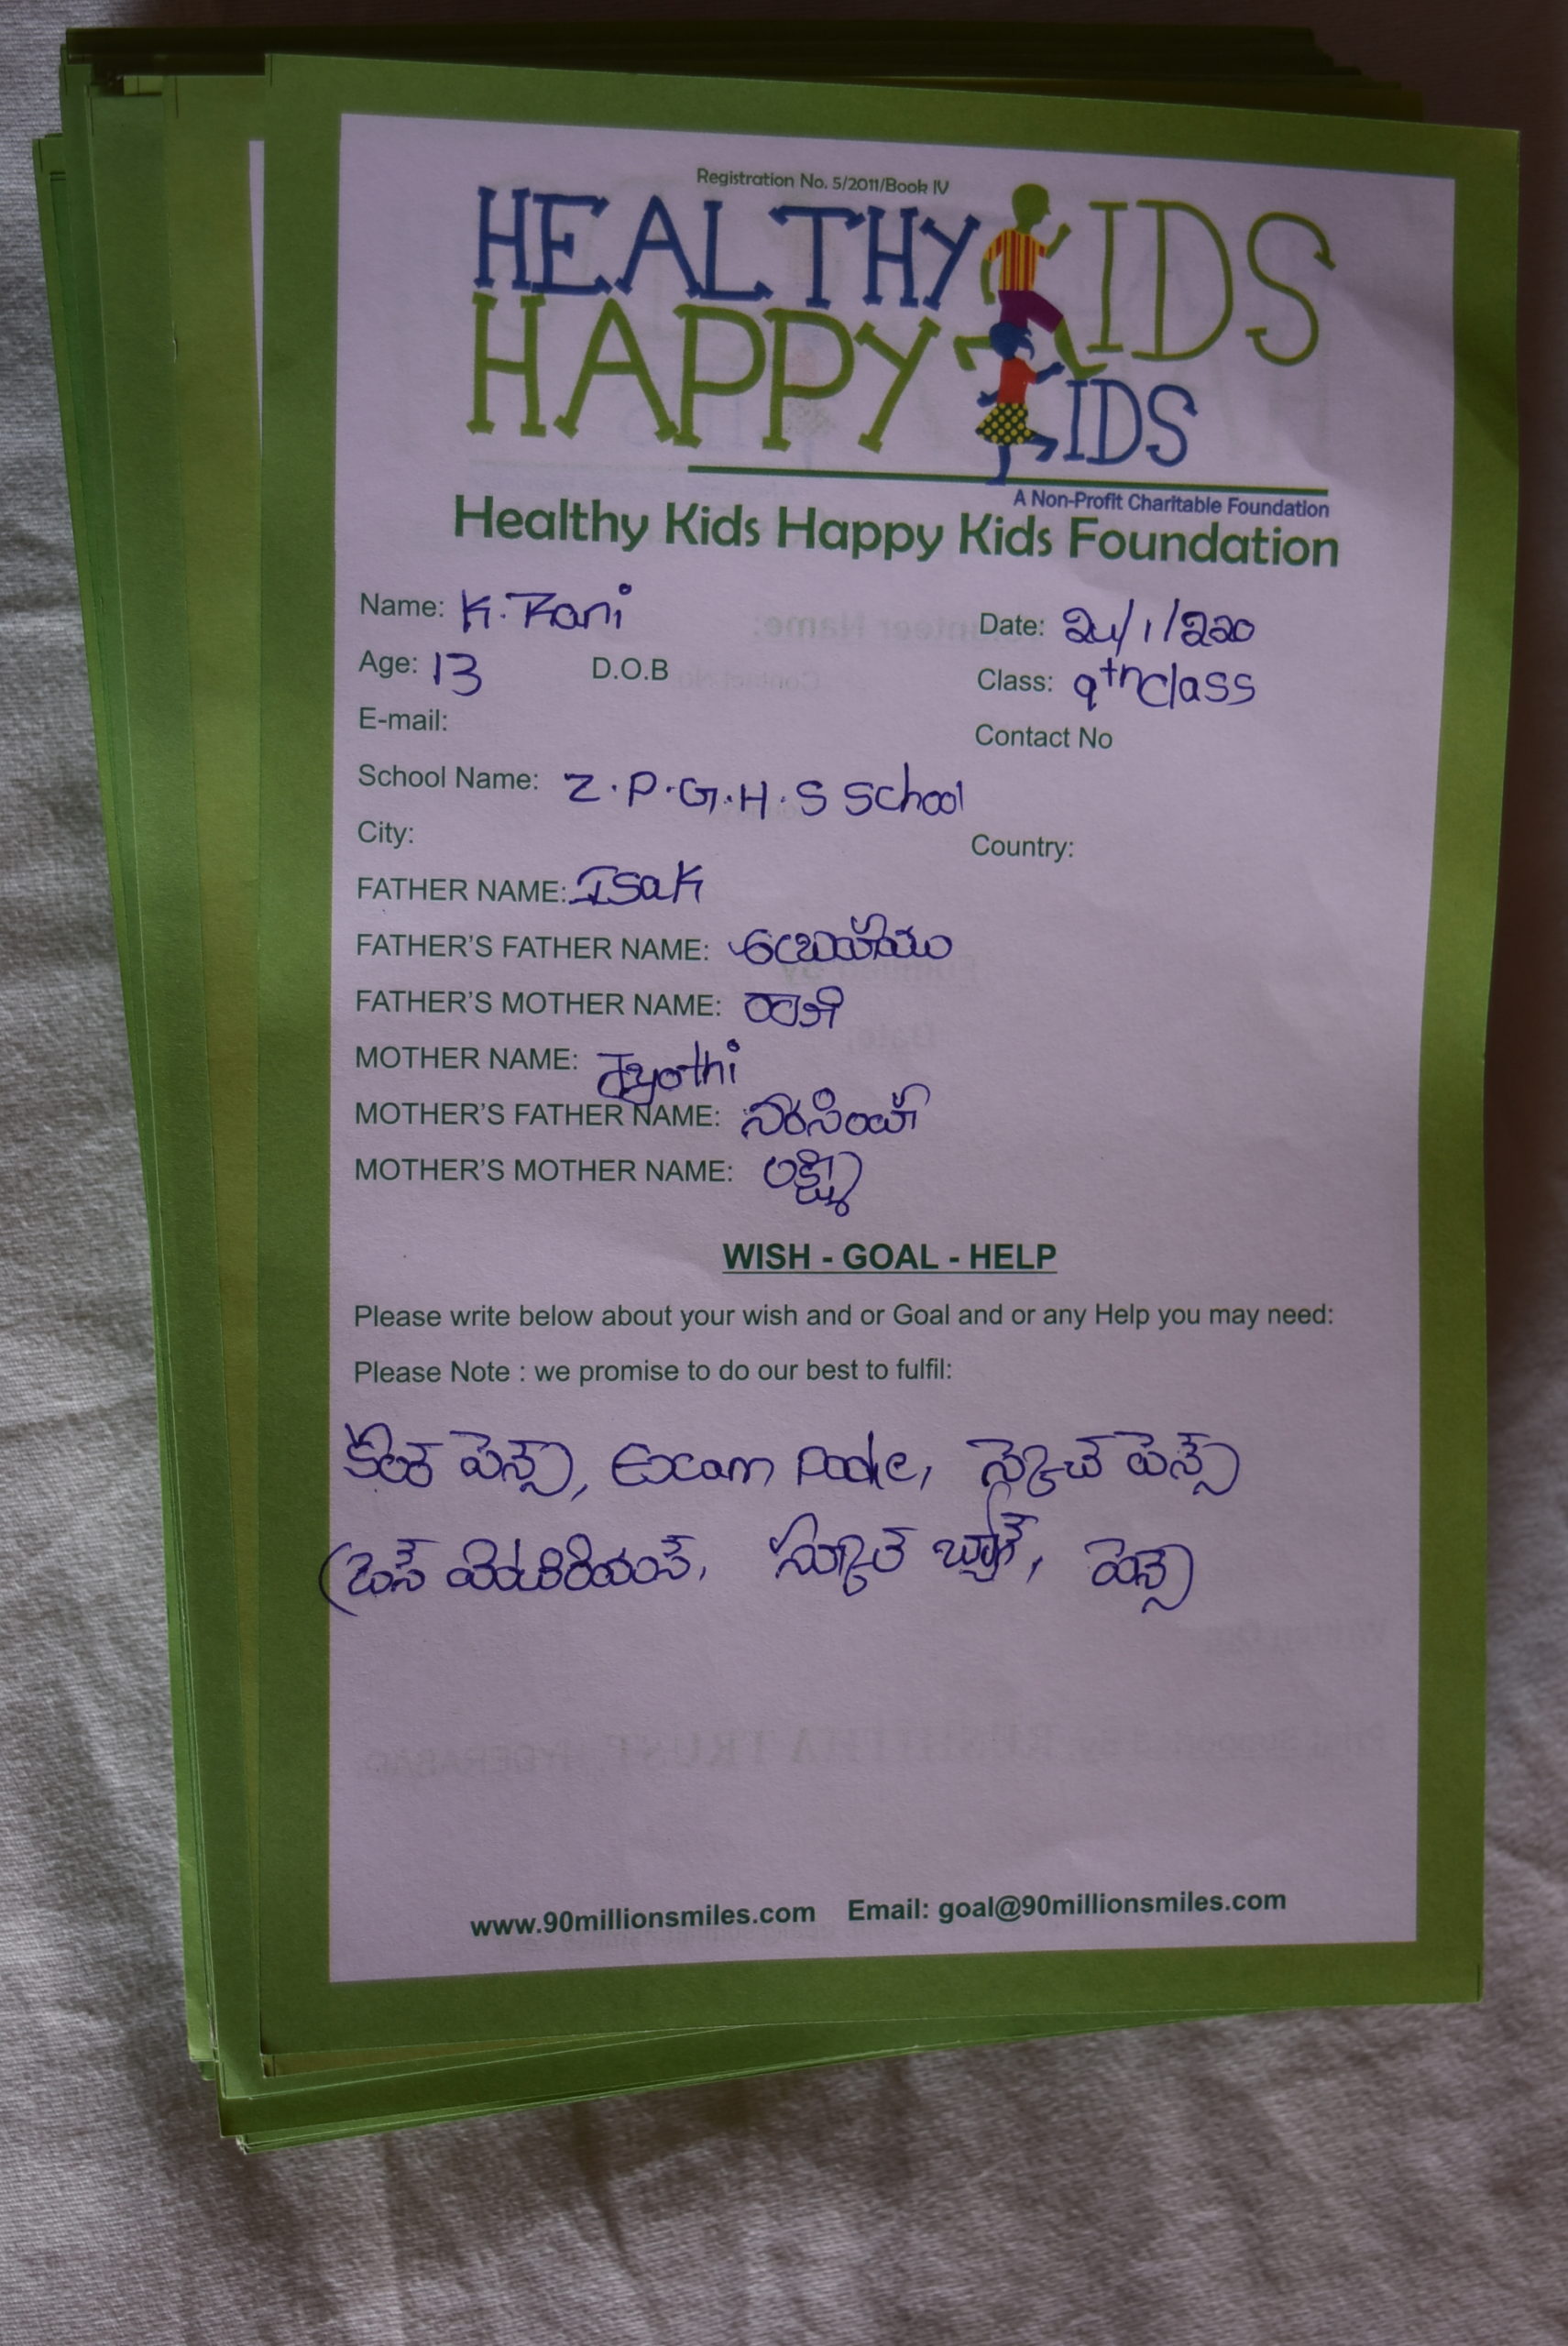 Registration No. 5/2011/Book IV
HEALTHY KIDS
HAPPY KIDS
A Non-Profit Charitable Foundation
Healthy Kids Happy Kids Foundation
Name: K. Rani Date: 24/1/220
Age: 13 D.O.B Class: 9th class
E-mail: Contact No
School Name: Z.P.G.H.S School
City: Country:
FATHER NAME: Isak
FATHER'S FATHER NAME:
FATHER'S MOTHER NAME: రాణి
MOTHER NAME: Jyothi
MOTHER'S FATHER NAME: నరసింహ
MOTHER'S MOTHER NAME: లక్ష్మి
WISH - GOAL - HELP
Please write below about your wish and or Goal and or any Help you may need:
Please Note : we promise to do our best to fulfil:
కలర్ పెన్స్, Exam స్కెచ్ పెన్స్
డ్రెస్ స్కూల్ బ్యాగ్, పెన్స్
www.90millionsmiles.com Email: goal@90millionsmiles.com